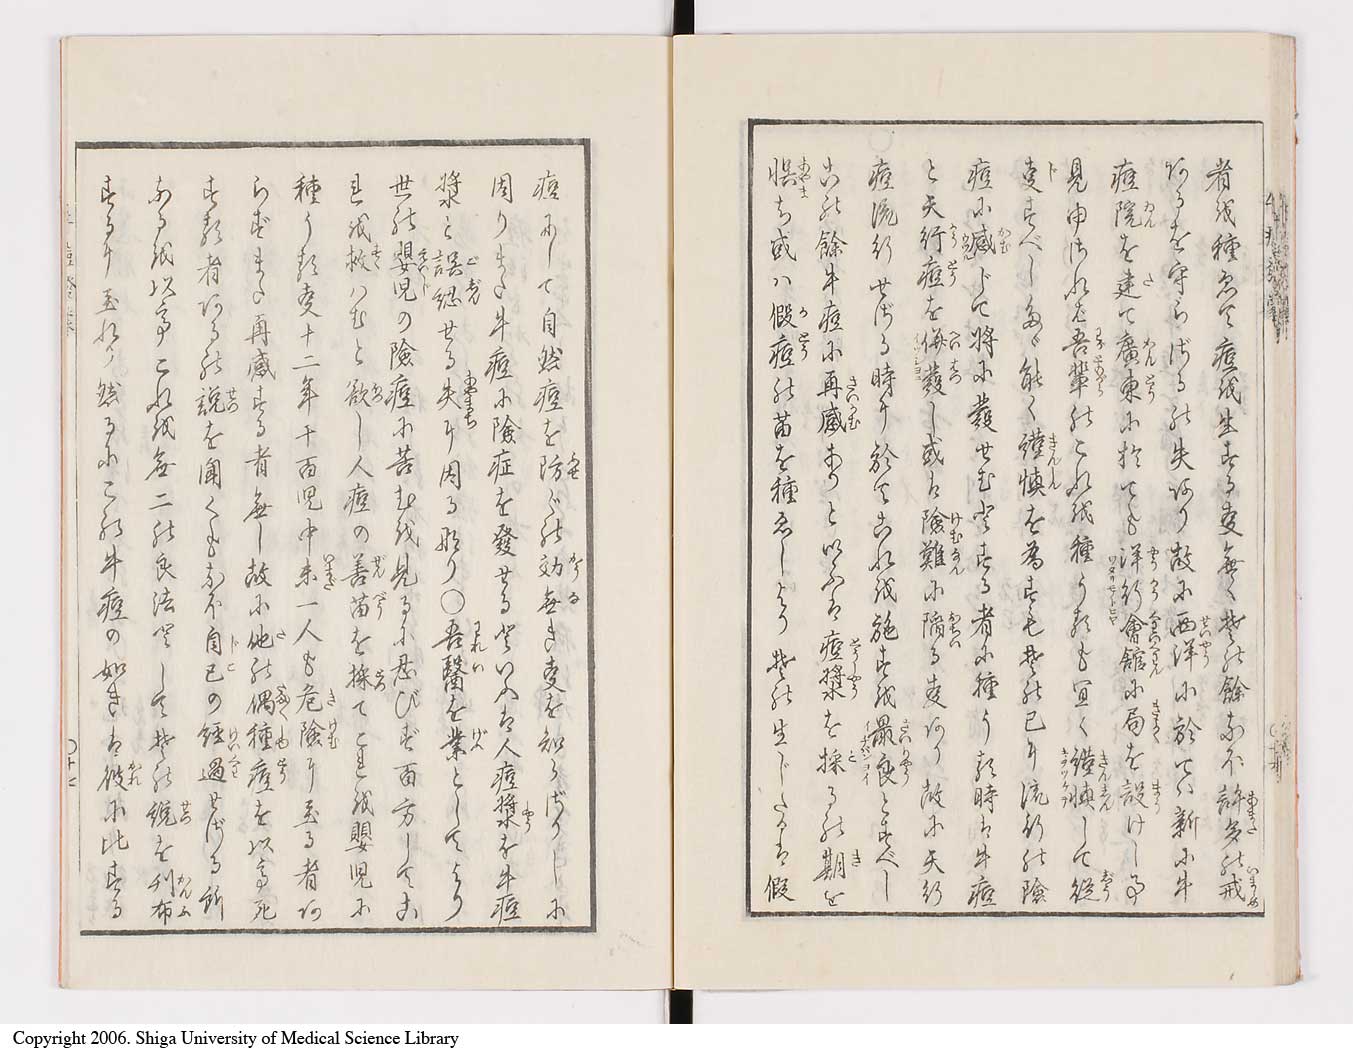 者を種ゑて痘を生ずる事無く其の餘なほ許多の戒
あるを守らざるの失あり故に西洋に於ては新に牛
痘院を建て廣東に於ても洋行會館に局を設けし事
見ゆされば吾輩のこれを種うるも宜く謹慎して從
事すべしただ能く謹慎を為すも其の已に流行の險
痘に感じて將に發せむとする者に種うる時は牛痘
と天行痘を併發し或は險難に陷る事あり故に天行
痘流行せざる時に於てこれを施すを最良とすべし
この餘牛痘に再感ありと以ふは痘漿を採るの期を
誤ち或は假痘の苗を種ゑしより其の生じたるは假
痘にして自然痘を防ぐの効無き事を知らざりしに
因りまた牛痘に險症を發せると以ふは人痘漿を牛痘
漿と誤認せる失に因る也○吾醫を業としてより
世の嬰児の險痘に苦むを見るに忍びず百方してこ
れを救はむと欲し人痘の善苗を採てこれを嬰児に
種うる事十二年千百児中未一人も危険に至る者あ
らずまた再感する者無し故に他の偶種痘を以て死
する者あるの説を聞くもなほ自己の經過せざる所
なるを以てこれを無二の良法として其の説を刊布
するに至れり然るにこの牛痘の如きは彼に比する
Copyright 2006. Shiga University of Medical Science Library